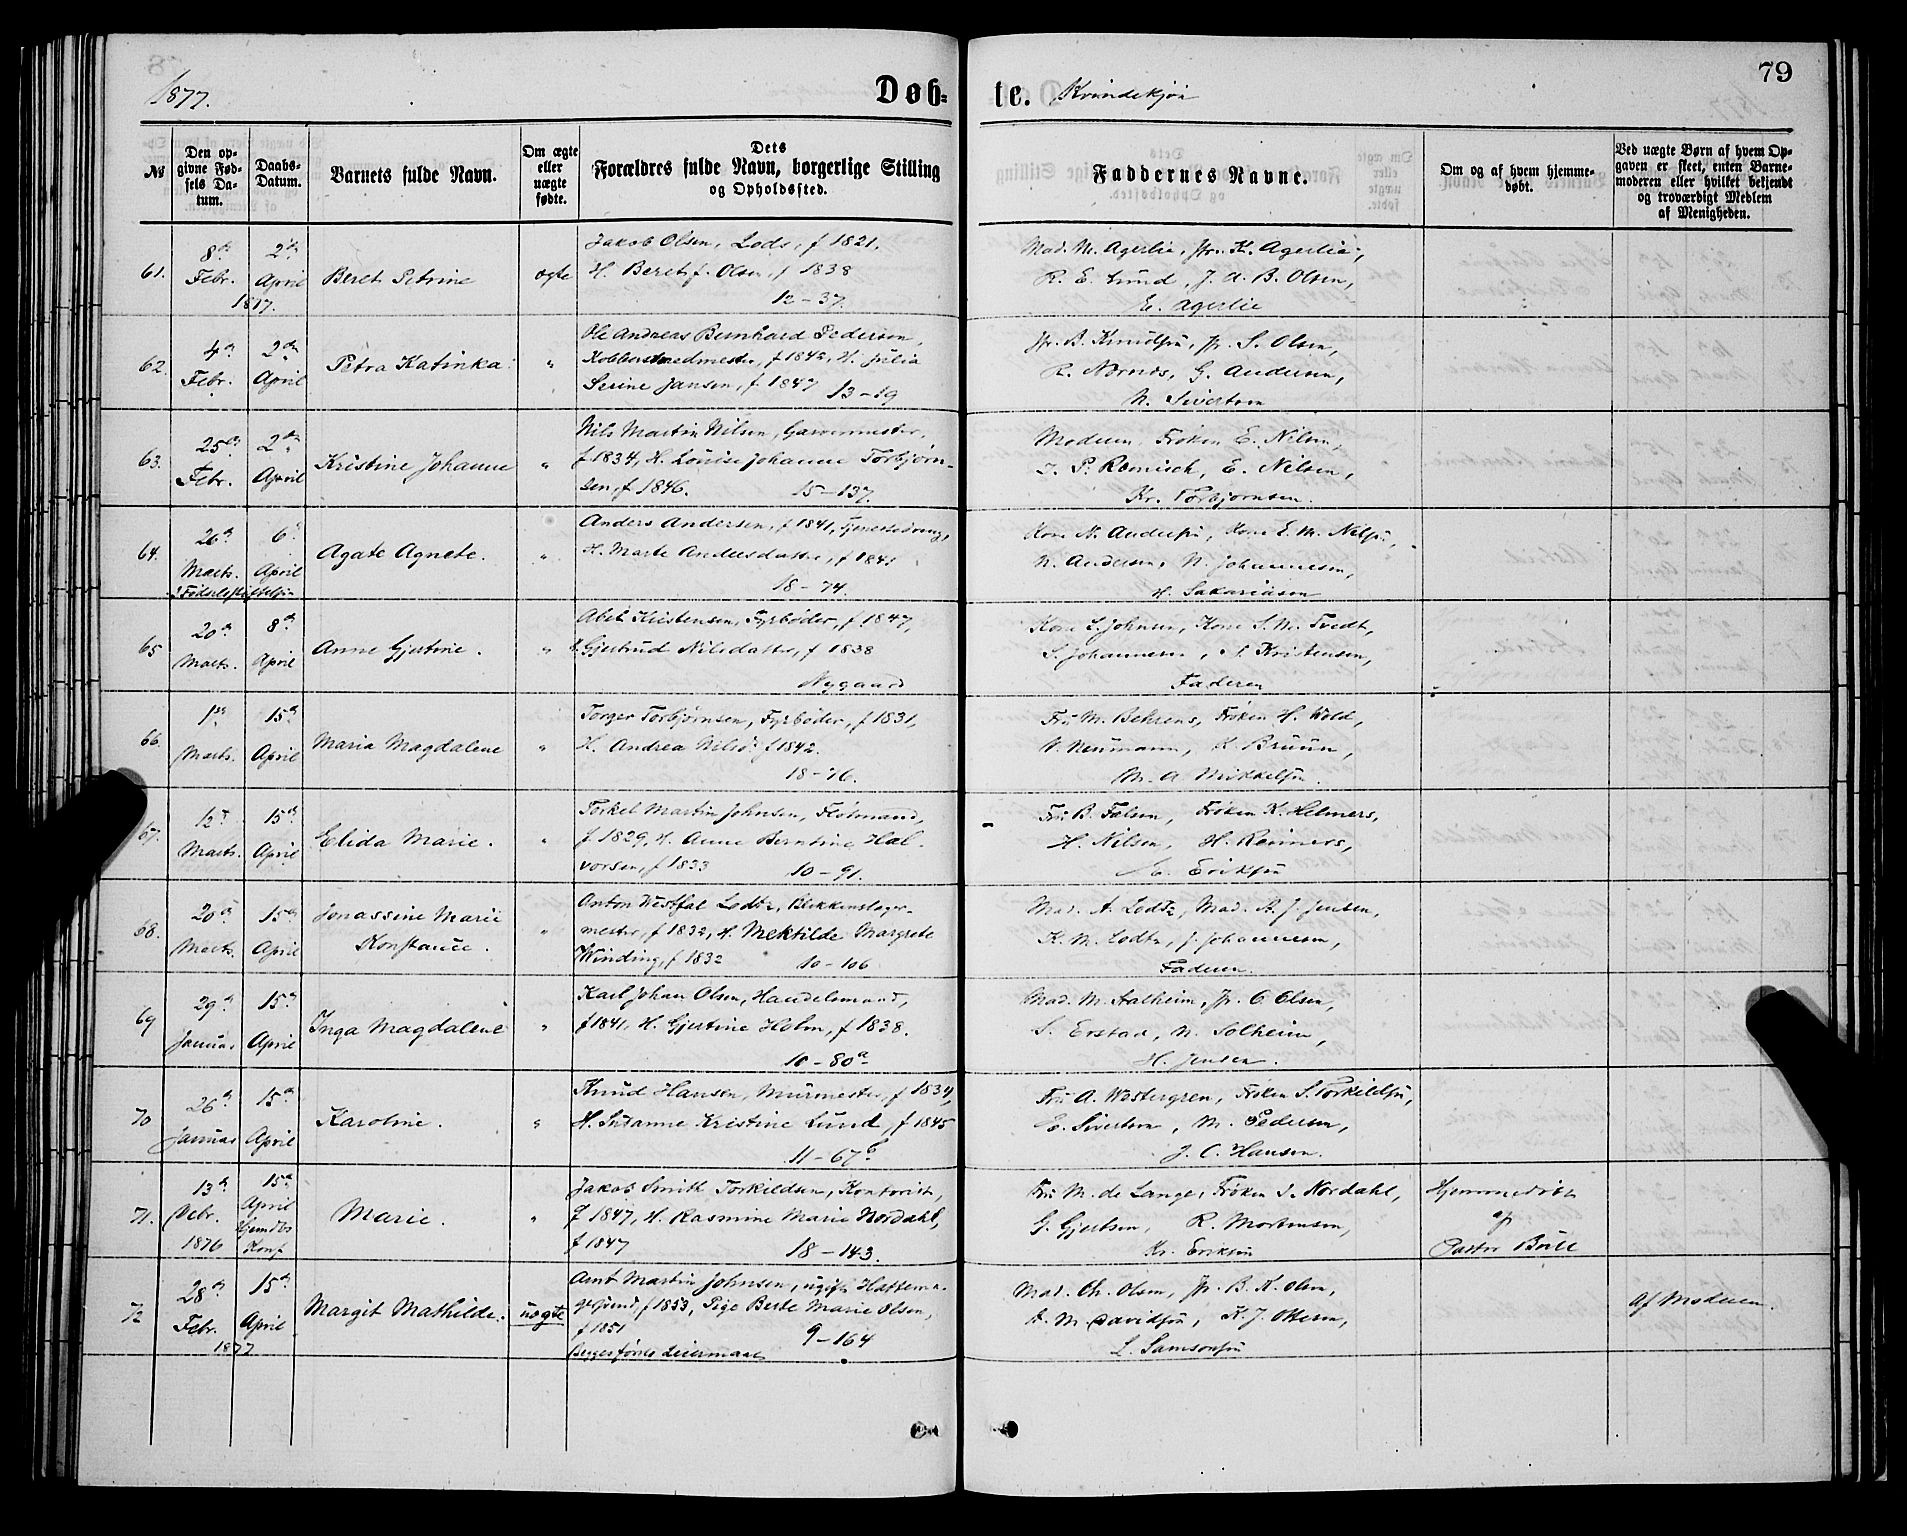 1877.
Døb-
te. Kvindekjøn
79
№
Den op-
givne Fød-
sels Da-
tum.
Daabs-
Datum.
Barnets fulde Navn.
Om ægte
eller
uægte
fødte.
Dets
Forældres fulde Navn, borgerlige Stilling
og Opholdssted.
Faddernes Navne.
Om og af hvem hjemme-
døbt.
Ved uægte Børn af hvem Op-
gaven er skeet, enten Barne-
moderen eller hvilket bekjendt
og troværdigt Medlem
af Menigheden.
61.
8de
Febr.
1877.
2den
April
Beret Petrine
ægte
Jakob Olsen, Lods, f 1821.
H. Beret f. Olsen, f 1838
12-37.
Mad. M. Agerlie, Jfr. K. Agerlie,
R. E. Lund, J. A. B. Olsen,
E. Agerlie
62.
4de
Febr.
2den
April
Petra Katinka
"
Ole Andreas Bernhard Pedersen,
Kobberslmedmester, f 1842, H. Julia
Serine Jansen, f 1847 13-19
Jfr. B. Knudsen, Jfr. S. Olsen,
R. Nornes, G. Andersen,
N. Sivertsen
63.
25de
Febr.
2den
April
Kristine Johanne
"
Nils Martin Nilsen, Garvermester,
f 1834, H. Louise Johanne Torbjørn-
sen, f 1846. 15-137
Moderen, Frøken E. Nilsen,
P. Romisch, E. Nilsen,
Kr. Torbjørnsen.
64.
26de
Marts.
Fødselsstiftelsen
6te
April
Agate Agnete.
"
Anders Andersen, f 1841, Tjenestedreng,
H. Marte Andersdatter, f 1841
18-74.
Kone N. Andersen, Kone E. M. Nilsen,
N. Andersen, N. Johannesen,
H. Sakariasen
65
20de
Marts.
8de
April
Anne Gjertine.
"
Abel Kristensen, Fyrbøder, f 1847,
H. Gjertrud Nilsdatter, f 1838
Nygaard
Kone L. Johnsen, Kone S. M. Tvedt,
S. Johannesen, A. Kristensen,
Faderen
66.
1ste
Marts.
15de
April
Maria Magdalene
"
Torger Torbjørnsen, Fyrbøder, f 1831,
H. Andrea Nilsd. f 1842.
18-76.
Fru M. Behrens, Frøken H. Wold,
W. Neumann, K. Bruun,
M. A. Mikkelsen.
67.
12te
Marts.
15de
April
Elida Marie.
"
Torkel Martin Johnsen, Flotmand,
f 1829, H. Anne Berntine Hal-
vorsen, f 1833 10-91.
Fru B. Falsen, Frøken K. Helmers,
H. Nilsen, H. Reimers,
E. Eriksen
68.
20de
Marts.
15de
April
Jonassine Marie
Konstance.
"
Anton Westfal Lodtz, Blikkenslager-
mester, f 1832, H. Mektilde Margrete
Winding, f 1832 10-106
Mad. A. Lodtz, Mad. A. J. Jensen,
K. M. Lodtz, J. Johannesen,
Faderen.
69
29de
Januar
15de
April
Inga Magdalene
"
Karl Johan Olsen, Handelsmand,
f 1841, H. Gjertine Holm, f 1838
10-80a
Mad. M. Stalheim, Jfr. O. Olsen,
S. Erstad, N. Solheim,
H. Jensen.
70
26de
Januar
15de
April
Karoline.
"
Knud Hansen, Murmester, f 1834,
H. Susanne Kristine Lund, f 1845
11-67b
Fru A. Westergren, Frøken S. Torkildsen,
E. Sivertsen, M. Pedersen,
J. C. Hansen.
71.
13de
Debr.
1876
15de
April
Hjemdbs
Konf
Marie.
"
Jakob Smith Torkildsen, Kontorist,
f 1847, H. Rasmine Marie Nordahl,
f 1847 18-143.
Fru M. de Lange, Frøken I. Nordahl,
G. Gjertsen, R. Mortensen,
Kr. Eriksen
Hjemmedøbt
af
Pastor Bull
72
28de
Febr.
1877
15de
April
Margit Mathilde.
uægte
Arnt Martin Johnsen, ugift Hattema-
gersvend, f 1853, Pige Berte Marie Olsen,
f 1851 9-164
Begges første Leiermaal
Mad. Ch. Olsen, Jfr. B. K. Olsen,
A. M. Davidsen, K. J. Olsen,
L. Samsonsen
Af Moderen.